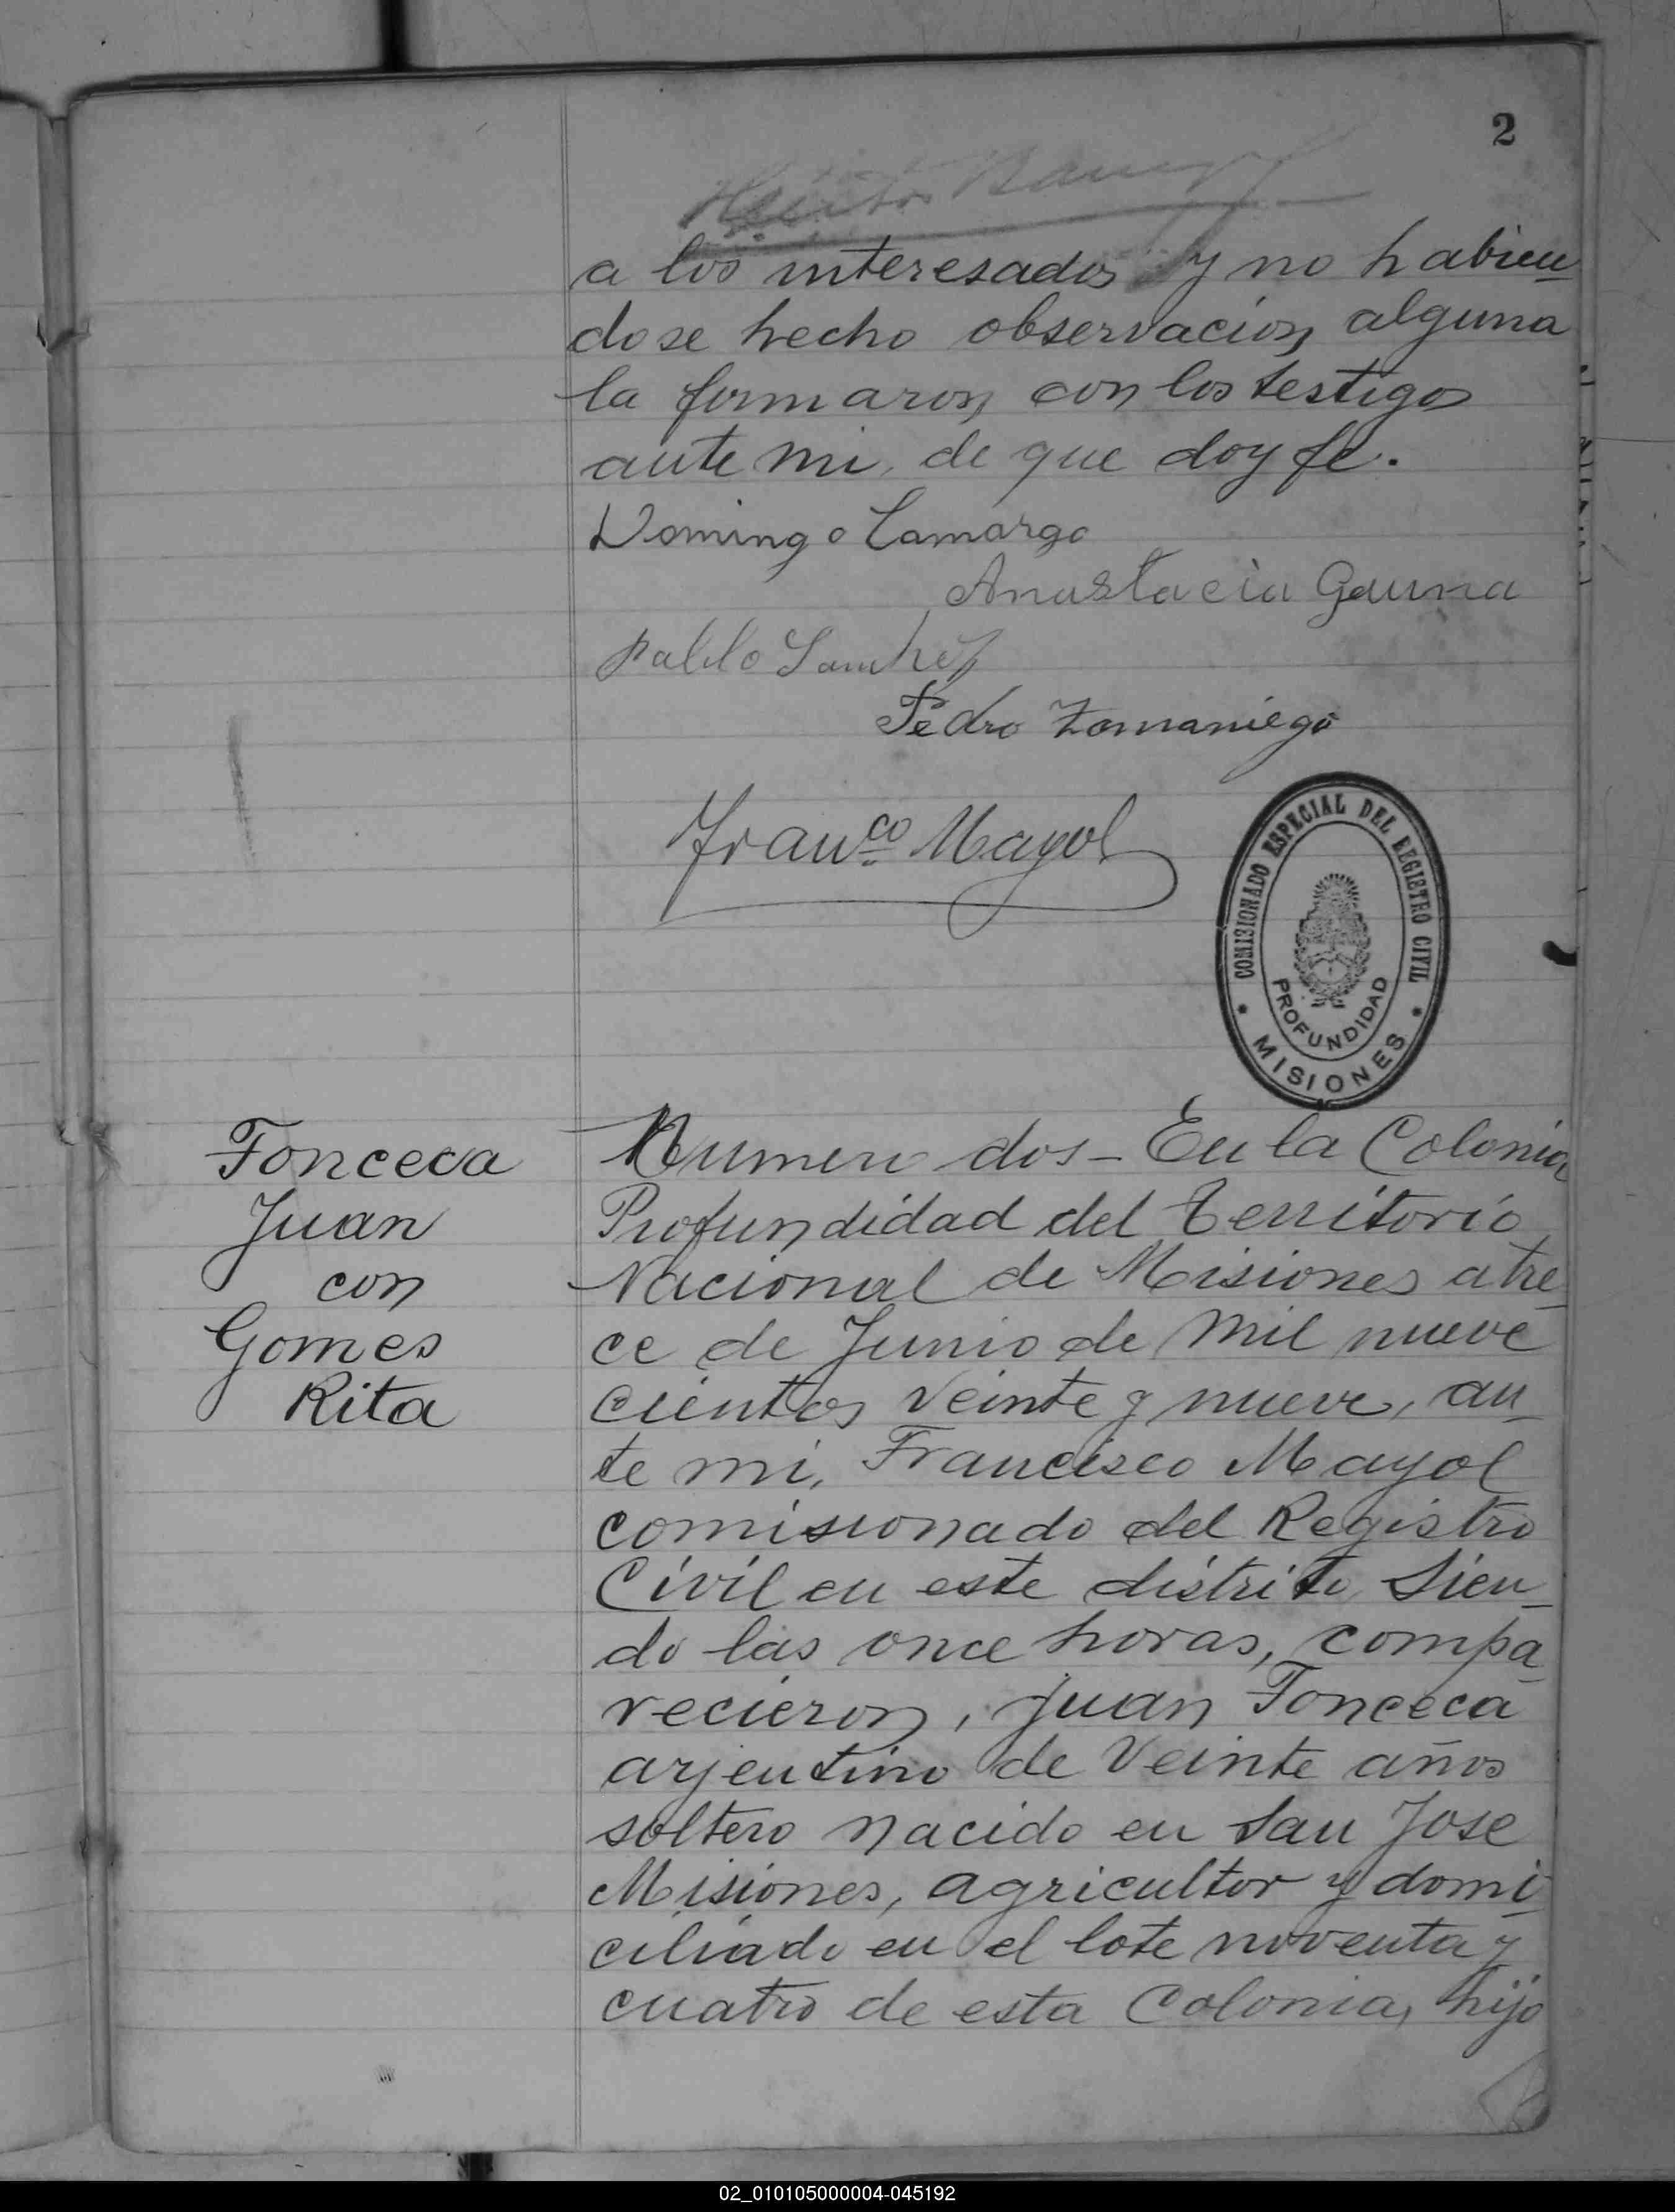 2
a los interesados y no habien
dose hecho observacion alguna
la firmaron con los testigos
ante mi, de que doy fe.
Domingo Camargo
Anastacia Gauna
Pablo Sanchez
Pedro Zamaniego
Franco Mayol
COMISIONADO ESPECIAL DEL REGISTRO CIVIL
PROFUNDIDAD
* MISIONES *
Fonceca
Juan
con
Gomes
Rita
Numero dos - En la Colonia
Profundidad del Territorio
Nacional de Misiones a tre
ce de Junio de mil nueve
cientos veinte y nueve, an
te mi, Francisco Mayol
comisionado del Registro
Civil en este distrito, sien
do las once horas, compa
recieron, Juan Fonceca
arjentino de veinte años
soltero nacido en San Jose
Misiones, agricultor y domi
ciliado en el lote noventa y
cuatro de esta Colonia, hijo
02_010105000004-045192